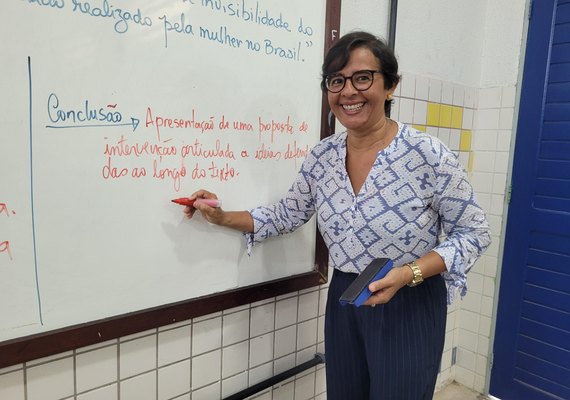 realizado pela mulher no Brasil."
invisibilidade do
Conclusão → Apresentação de uma proposta de
intervenção articulada a ideias defen
das ao longo do texto.
a.
a